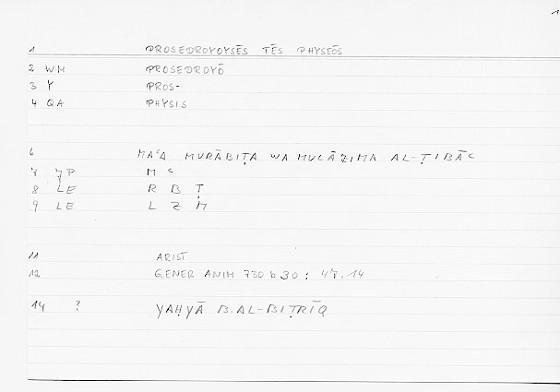 1
1 PROSEDROYOYSĒS TĒS PHYSEŌS
2 WM PROSEDROYŌ
3 Y PROS-
4 QA PHYSIS
6 MAʿA MURĀBIṬA WA MULĀZIMA AL-ṬIBĀʿ
7 YP M ʿ
8 LE R B Ṭ
9 LE L Z M
11 ARIST
12 GENER ANIM 730 b 30 ; 47.14
14 ? YAḤYĀ B. AL-BIṬRĪQ